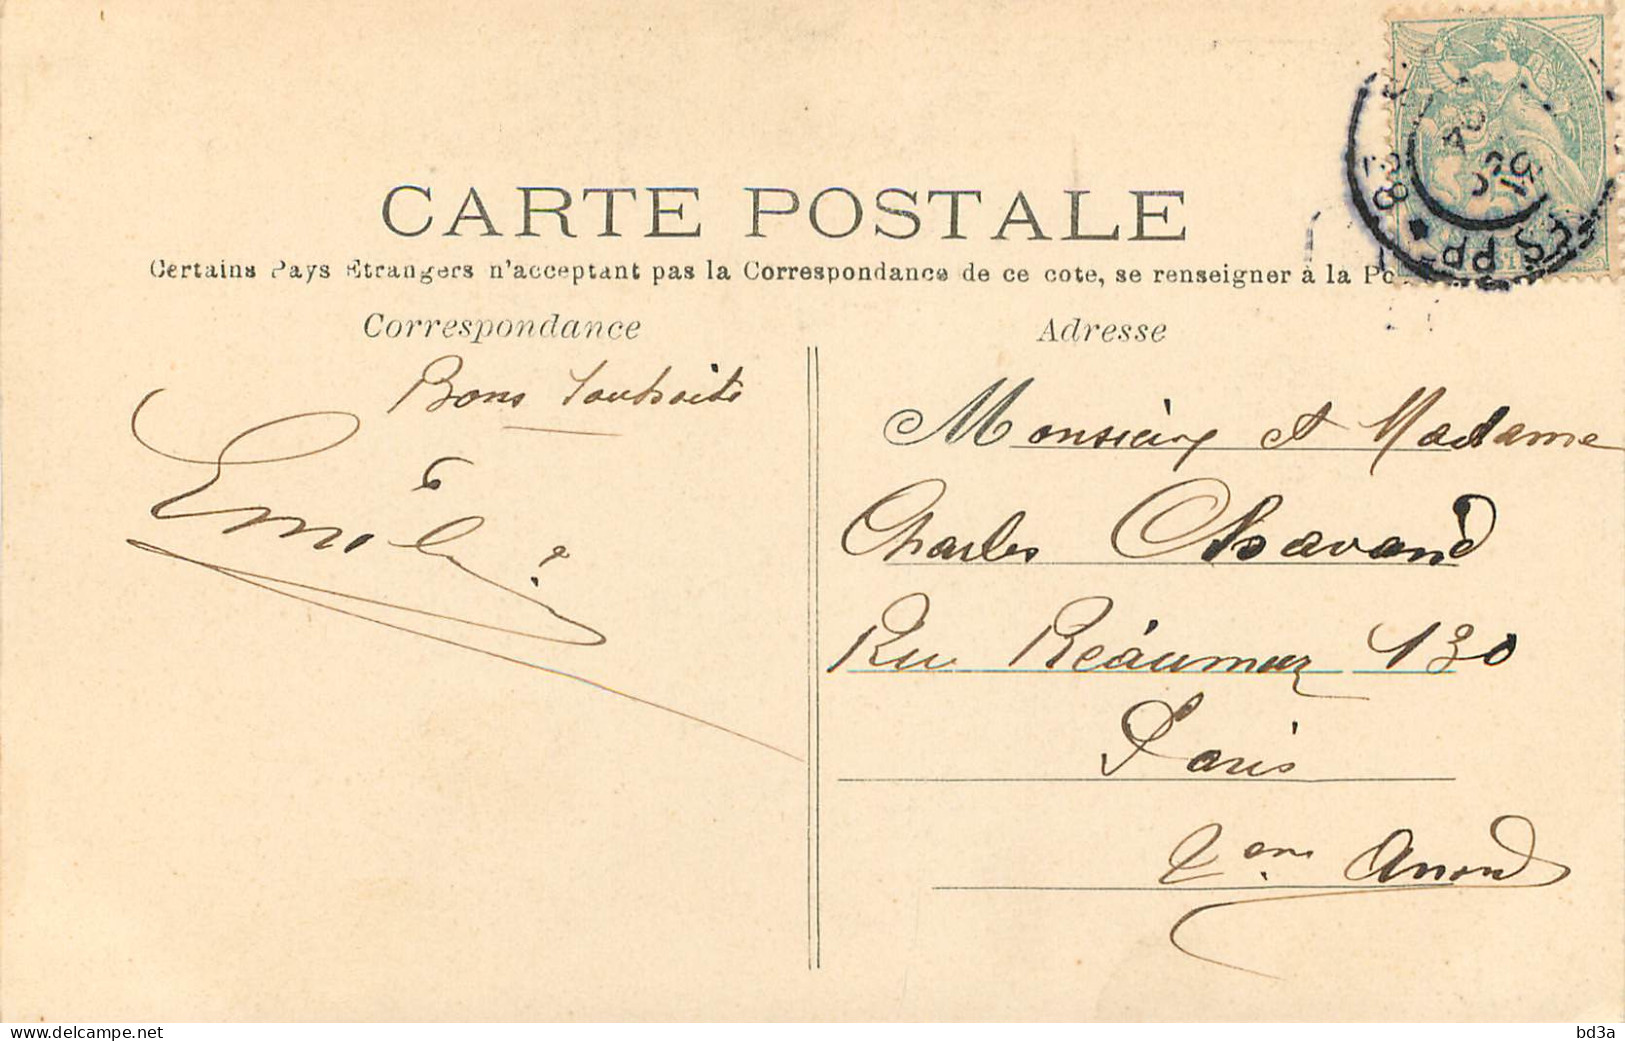 CARTE POSTALE
Certains Pays Etrangers n'acceptant pas la Correspondance de ce cote, se renseigner à la Po
Correspondance
Adresse
Bons Souhaits
Emile
Monsieur et Madame
Charles Chavand
Rue Réaumur 130
Paris
2eme Arrond
38
PP
delcampe.net
bd3a